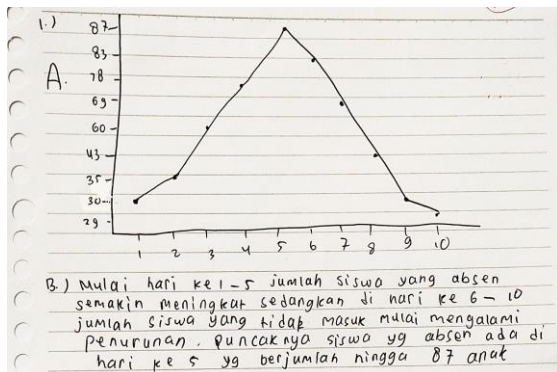 1.)
A.
87
83
78
69
60
43
35
30
29
1 2 3 4 5 6 7 8 9 10
B.) Mulai hari ke 1 - 5 jumlah siswa yang absen
semakin meningkat sedangkan di hari ke 6 - 10
jumlah siswa yang tidak masuk mulai mengalami
penurunan. Puncaknya siswa yg absen ada di
hari ke 5 yg berjumlah hingga 87 anak